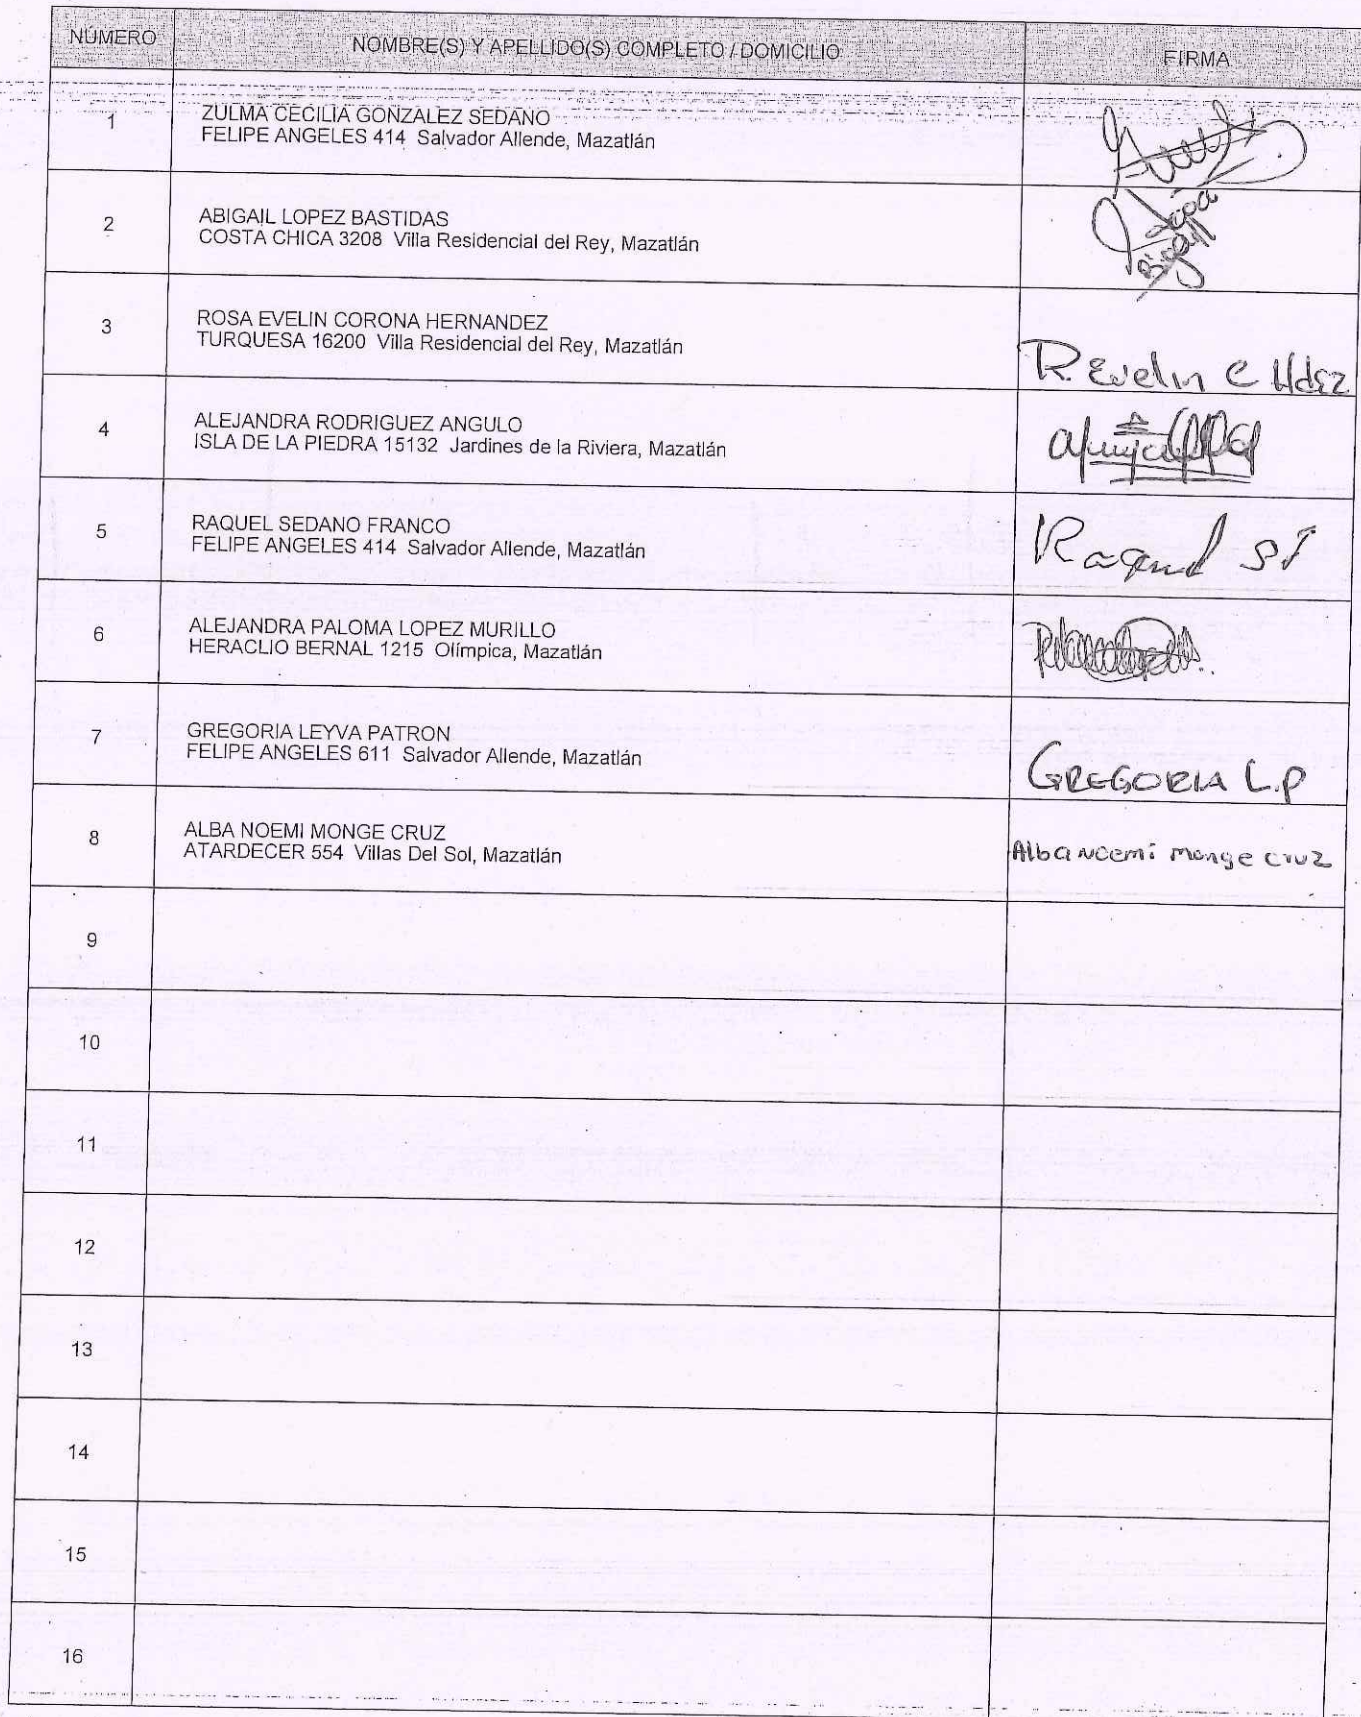 NÚMERO NOMBRE(S) Y APELLIDO(S) COMPLETO / DOMICILIO FIRMA
1 ZULMA CECILIA GONZALEZ SEDANO
FELIPE ANGELES 414 Salvador Allende, Mazatlán
2 ABIGAIL LOPEZ BASTIDAS
COSTA CHICA 3208 Villa Residencial del Rey, Mazatlán
3 ROSA EVELIN CORONA HERNANDEZ
TURQUESA 16200 Villa Residencial del Rey, Mazatlán
R. Evelin C Hdez
4 ALEJANDRA RODRIGUEZ ANGULO
ISLA DE LA PIEDRA 15132 Jardines de la Riviera, Mazatlán
5 RAQUEL SEDANO FRANCO
FELIPE ANGELES 414 Salvador Allende, Mazatlán
Raquel SF
6 ALEJANDRA PALOMA LOPEZ MURILLO
HERACLIO BERNAL 1215 Olímpica, Mazatlán
7 GREGORIA LEYVA PATRON
FELIPE ANGELES 611 Salvador Allende, Mazatlán
GREGORIA L.P
8 ALBA NOEMI MONGE CRUZ
ATARDECER 554 Villas Del Sol, Mazatlán
Alba Noemi Monge Cruz
9
10
11
12
13
14
15
16